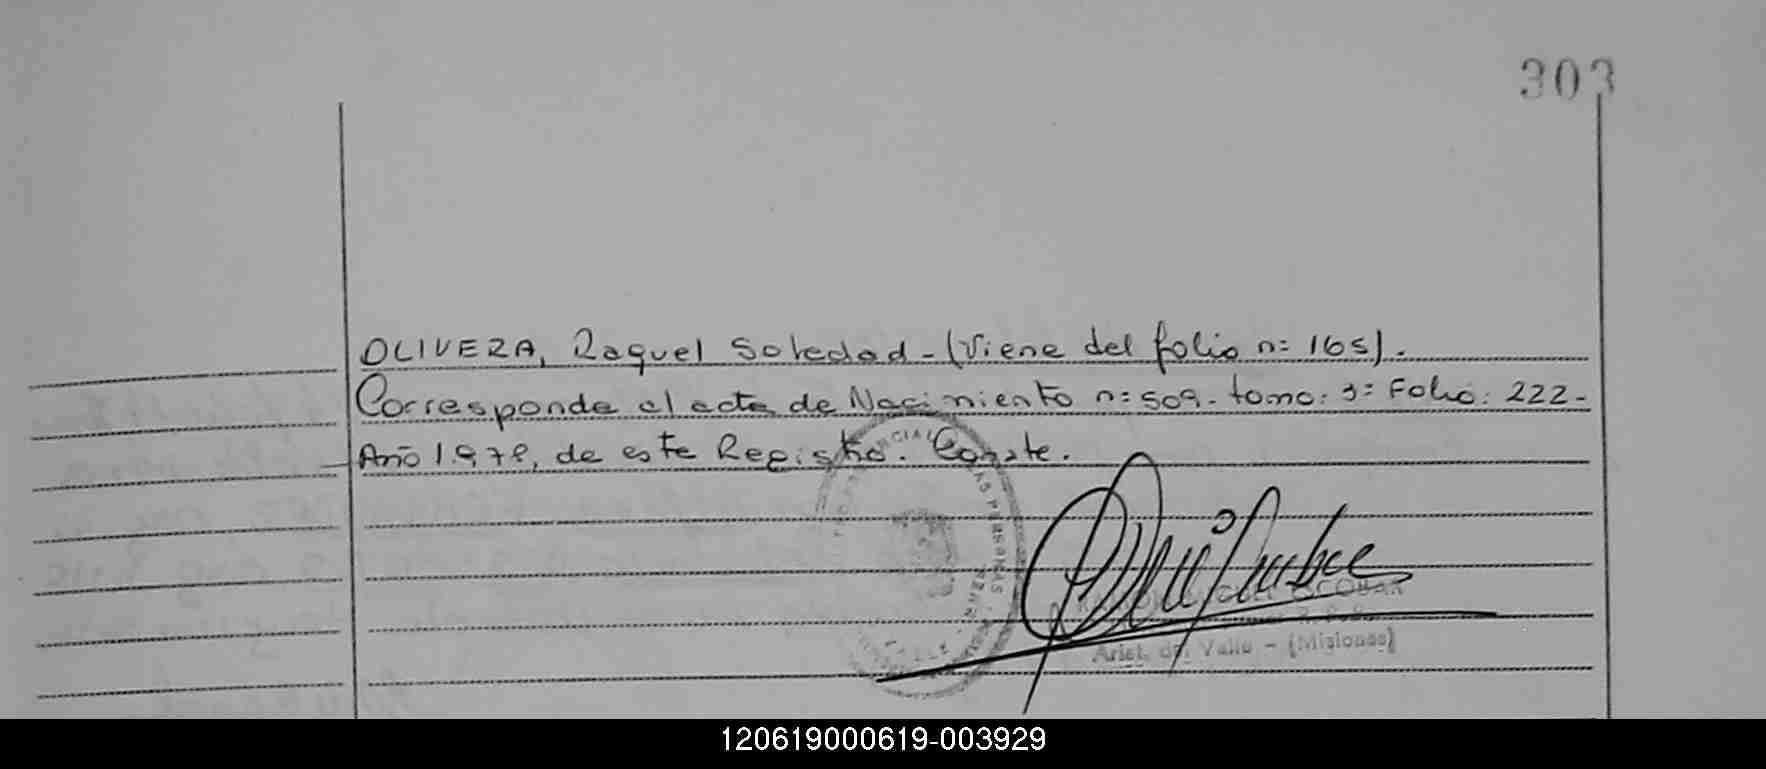 303
OLIVERA, Raquel Soledad - (Viene del folio n: 165).
Corresponde al acta de Nacimiento n: 509 - tomo: 3: Folio: 222 -
Año 1.978, de este Registro. Conste.
ESCOBAR
Arist. del Valle - (Misiones)
120619000619-003929